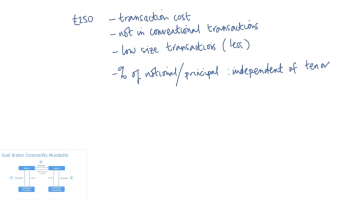 £150 - transaction cost
- not in conventional transactions
- low size transactions (less)
- % of notional/principal : independent of tenor
Dual Broker Commodity Murabaha